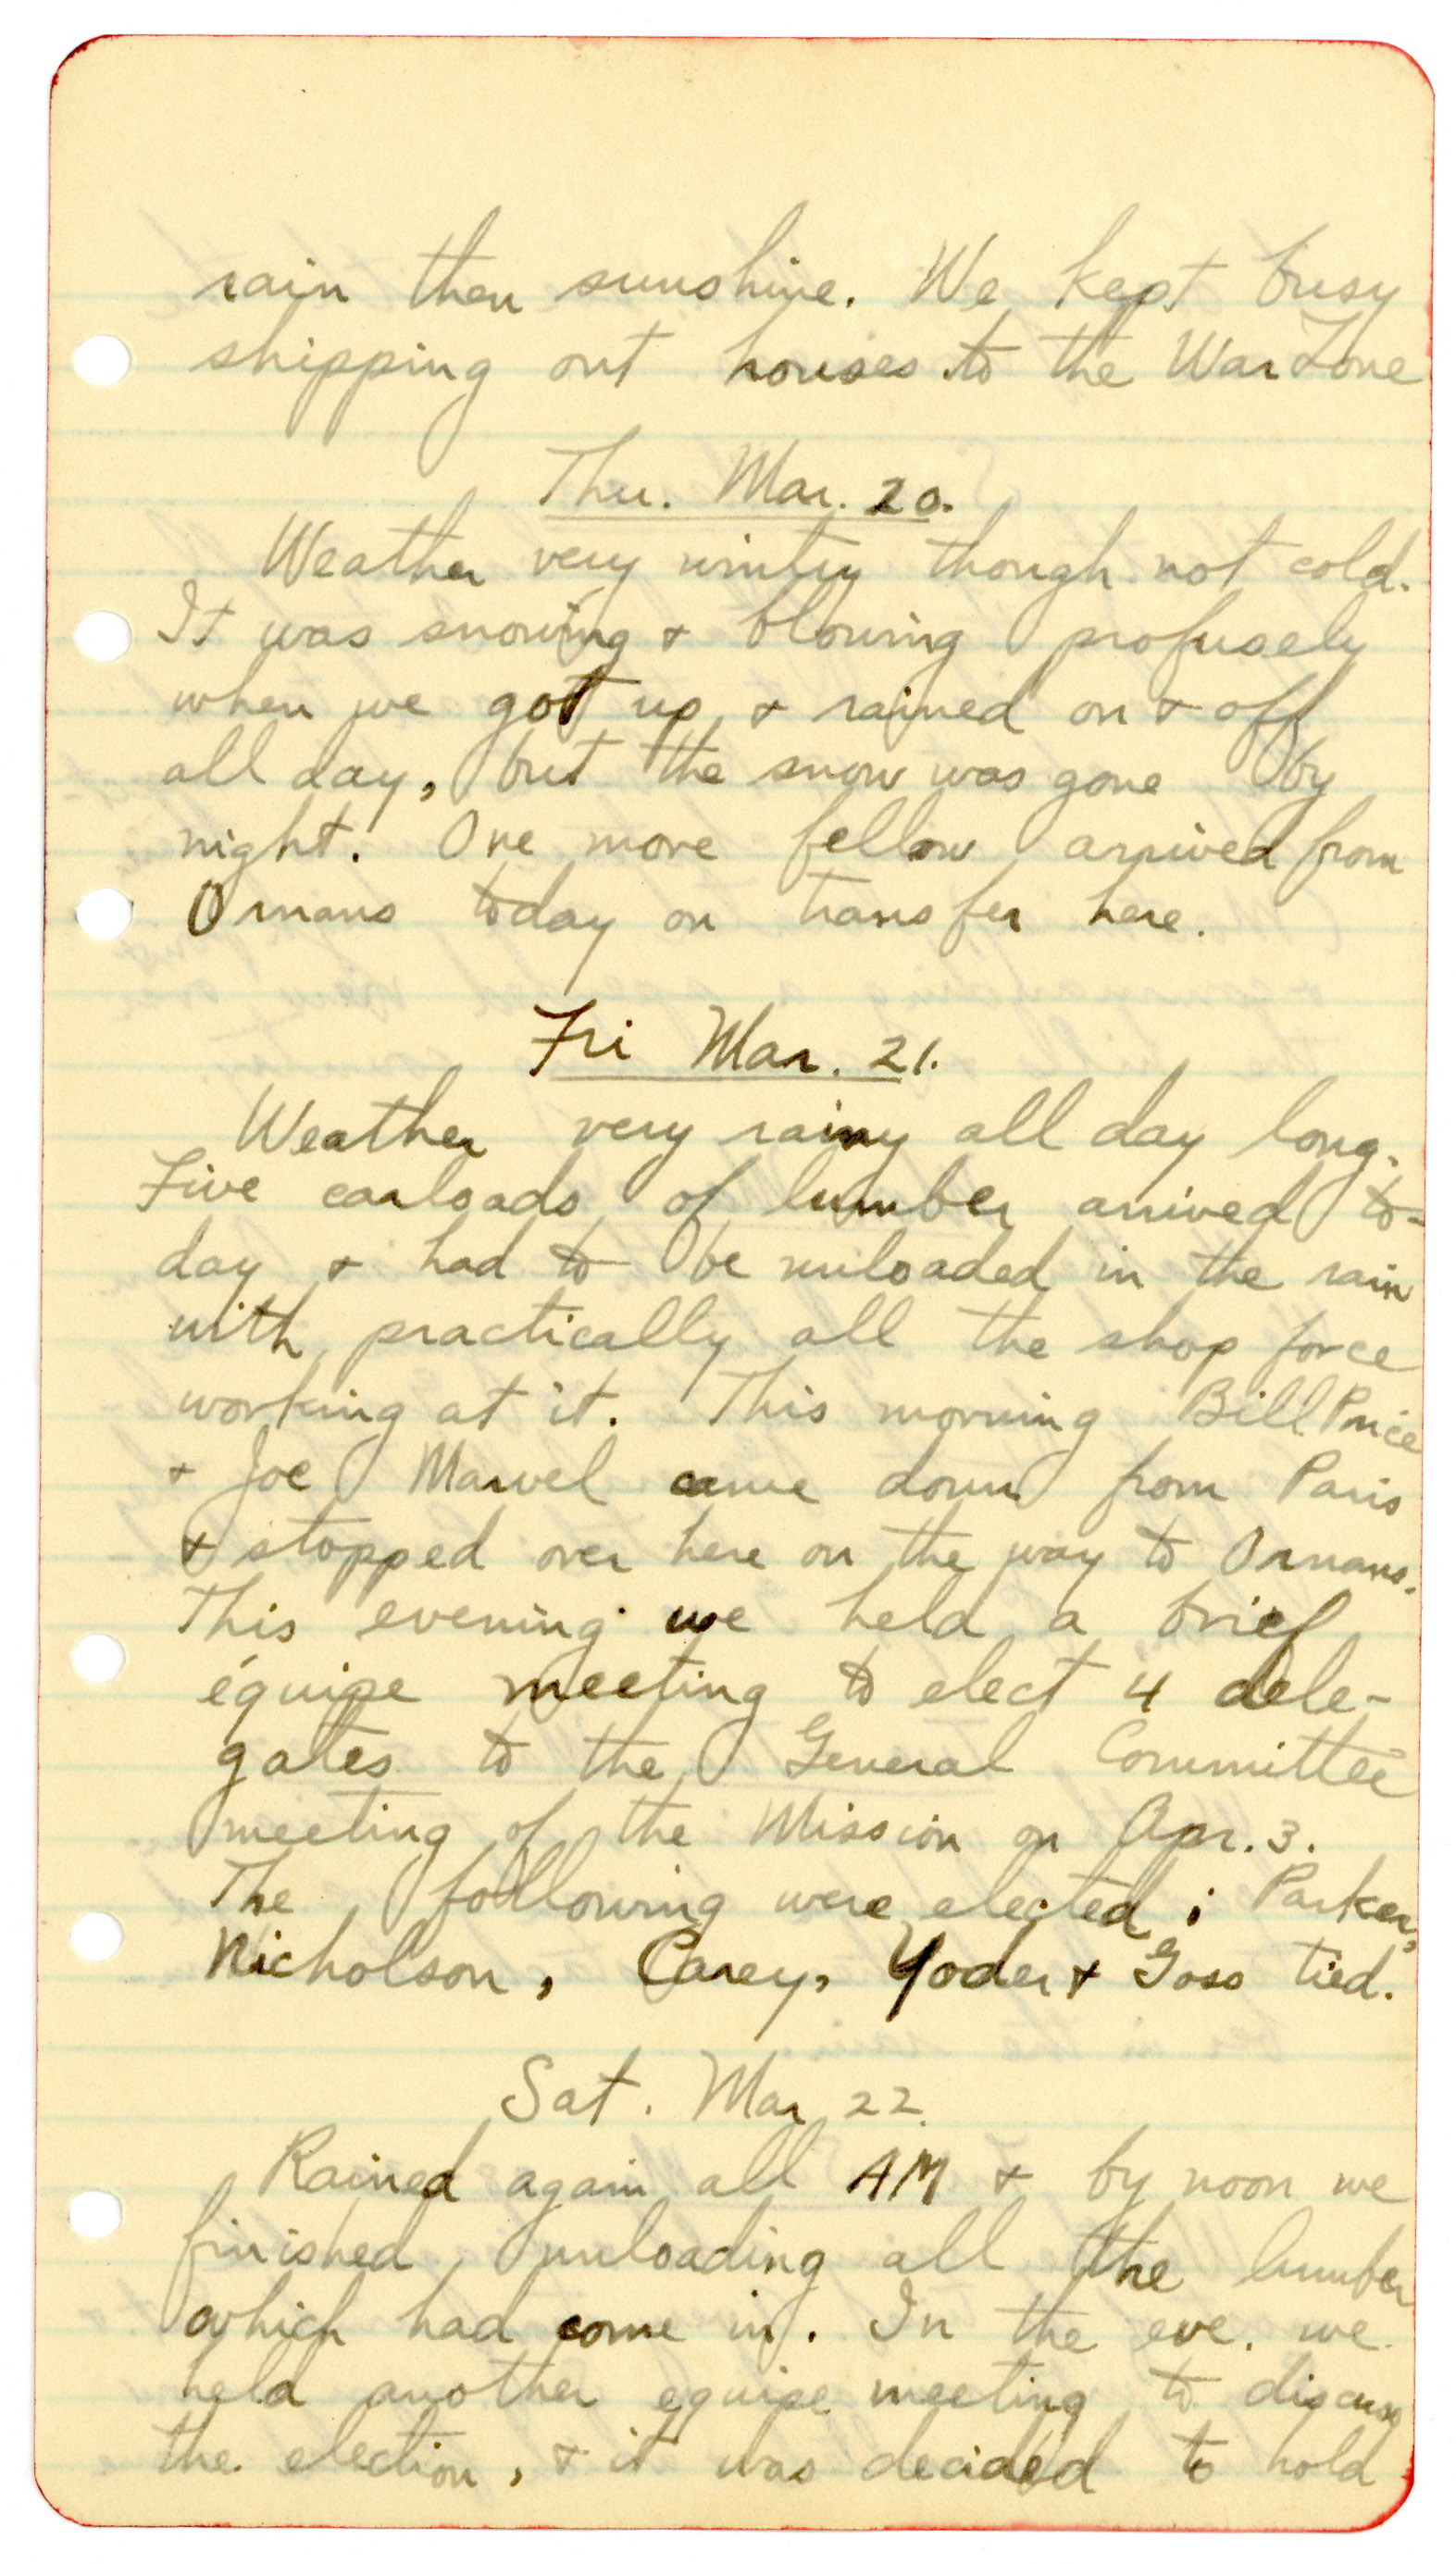 rain then sunshine. We kept busy
shipping out houses to the War Zone
Thu. Mar. 20.
Weather very wintry though not cold.
It was snowing & blowing profusely
when we got up & rained on & off
all day, but the snow was gone by
night. One more fellow arrived from
Ornans today on transfer here.
Fri Mar. 21.
Weather very rainy all day long.
Five carloads of lumber arrived to-
day & had to be unloaded in the rain
with practically all the shop force
working at it. This morning Bill Price
& Joe Marvel came down from Paris
& stopped over here on the way to Ornans.
This evening we held a brief
équipe meeting to elect 4 dele-
gates to the General Committee
meeting of the Mission on Apr. 3.
The following were elected: Parker,
Nicholson, Carey, Yoder & Goss tied.
Sat. Mar 22.
Rained again all AM & by noon we
finished unloading all the lumber
which had come in. In the eve. we
held another equipe meeting to discuss
the election, & it was decided to hold